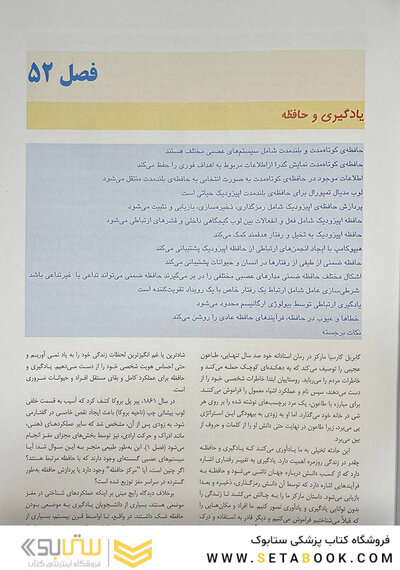 فصل ۵۲
یادگیری و حافظه
حافظه‌ی کوتاه‌مدت و بلندمدت شامل سیستم‌های عصبی مختلف هستند
حافظه‌ی کوتاه‌مدت نمایش گذرا ازاطلاعات مربوط به اهداف فوری را حفظ می‌کند
اطلاعات موجود در حافظه‌ی کوتاه‌مدت به صورت انتخابی به حافظه‌ی بلندمدت منتقل می‌شود
لوب مدیال تمپورال برای حافظه‌ی بلندمدت اپیزودیک حیاتی است
پردازش حافظه‌ی اپیزودیک شامل رمزگذاری، ذخیره‌سازی، بازیابی و تثبیت می‌شود
حافظه اپیزودیک شامل فعل و انفعالات بین لوب گیجگاهی داخلی و قشرهای ارتباطی می‌شود
حافظه اپیزودیک به تخیل و رفتار هدفمند کمک می‌کند
هیپوکامپ با ایجاد انجمن‌های ارتباطی از حافظه اپیزودیک پشتیبانی می‌کند
حافظه ضمنی از طیفی از رفتارها در انسان و حیوانات پشتیبانی می‌کند
اشکال مختلف حافظه ضمنی مدارهای عصبی مختلفی را در بر می‌گیرند حافظه ضمنی می‌تواند تداعی یا غیرتداعی باشد
شرطی‌سازی عامل شامل ارتباط یک رفتار خاص با یک رویداد تقویت‌کننده است
یادگیری ارتباطی توسط بیولوژی ارگانیسم محدود می‌شود
خطاها و عیوب در حافظه، فرآیندهای حافظه عادی را روشن می‌کند
نکات برجسته
گابریل گارسیا مارکز در رمان استادانه خود صد سال تنهایی، طاعون
عجیبی را توصیف می‌کند که به دهکده‌ای کوچک حمله می‌کند و
خاطرات مردم را می‌رباید. روستاییان ابتدا خاطرات شخصی خود را از
دست می‌دهند، سپس نام و عملکرد اشیاء معمول را فراموش می‌کنند.
برای مبارزه با طاعون، یک مرد برچسب‌های نوشته شده را بر روی هر
شی در خانه خود می‌گذارد. اما او به زودی به بیهودگی این استراتژی
پی می‌برد، زیرا طاعون در نهایت حتی دانش او را از کلمات و حروف از
بین می‌برد.
این حادثه تخیلی به ما یادآوری می‌کند که یادگیری و حافظه
چقدر در زندگی روزمره اهمیت دارد. یادگیری به تغییر رفتاری اشاره
دارد که از کسب دانش درباره جهان ناشی می‌شود و حافظه به
فرآیندهایی اشاره دارد که توسط آن دانش رمزگذاری، ذخیره و بعداً
بازیابی می‌شود. داستان مارکز ما را به چالش می‌کشد تا زندگی را
بدون توانایی یادگیری و یادآوری تصور کنیم. ما افراد و مکان‌هایی را
که قبلاً می‌شناختیم فراموش می‌کنیم و دیگر قادر به استفاده و درک
شادترین یا غم انگیزترین لحظات زندگی خود را به یاد نمی آوریم و
حتی احساس هویت شخصی خود را از دست می‌دهیم. یادگیری و
حافظه برای عملکرد کامل و بقای مستقل افراد و حیوانات ضروری
است.
در سال ۱۸۶۱، پیر پل بروکا کشف کرد که آسیب به قسمت خلفی
لوب پیشانی چپ (ناحیه بروکا) باعث ایجاد نقص خاصی در گفتارمی
شود. به زودی پس از آن، مشخص شد که سایر عملکردهای ذهنی،
مانند ادراک و حرکت ارادی، نیز توسط بخش‌های مجزای مغز انجام
می‌شود (فصل ۱). این به‌طور طبیعی منجر به این سوال شد: آیا
سیستم‌های عصبی گسسته‌ای وجود دارند که با حافظه مرتبط هستند؟
اگر چنین است، آیا "مرکز حافظه" وجود دارد یا پردازش حافظه به‌طور
گسترده در سراسر مغز توزیع شده است؟
برخلاف دیدگاه رایج مبنی بر اینکه عملکردهای شناختی در مغز
موضعی هستند، بسیاری از دانشجویان یادگیری به موضعی بودن
حافظه شک داشتند. در واقع، تا اواسط قرن بیستم، بسیاری از
فروشگاه کتاب پزشکی ستابوک
WWW.SETABOOK.COM
ستابوک
فروشگاه اینترنتی کتاب